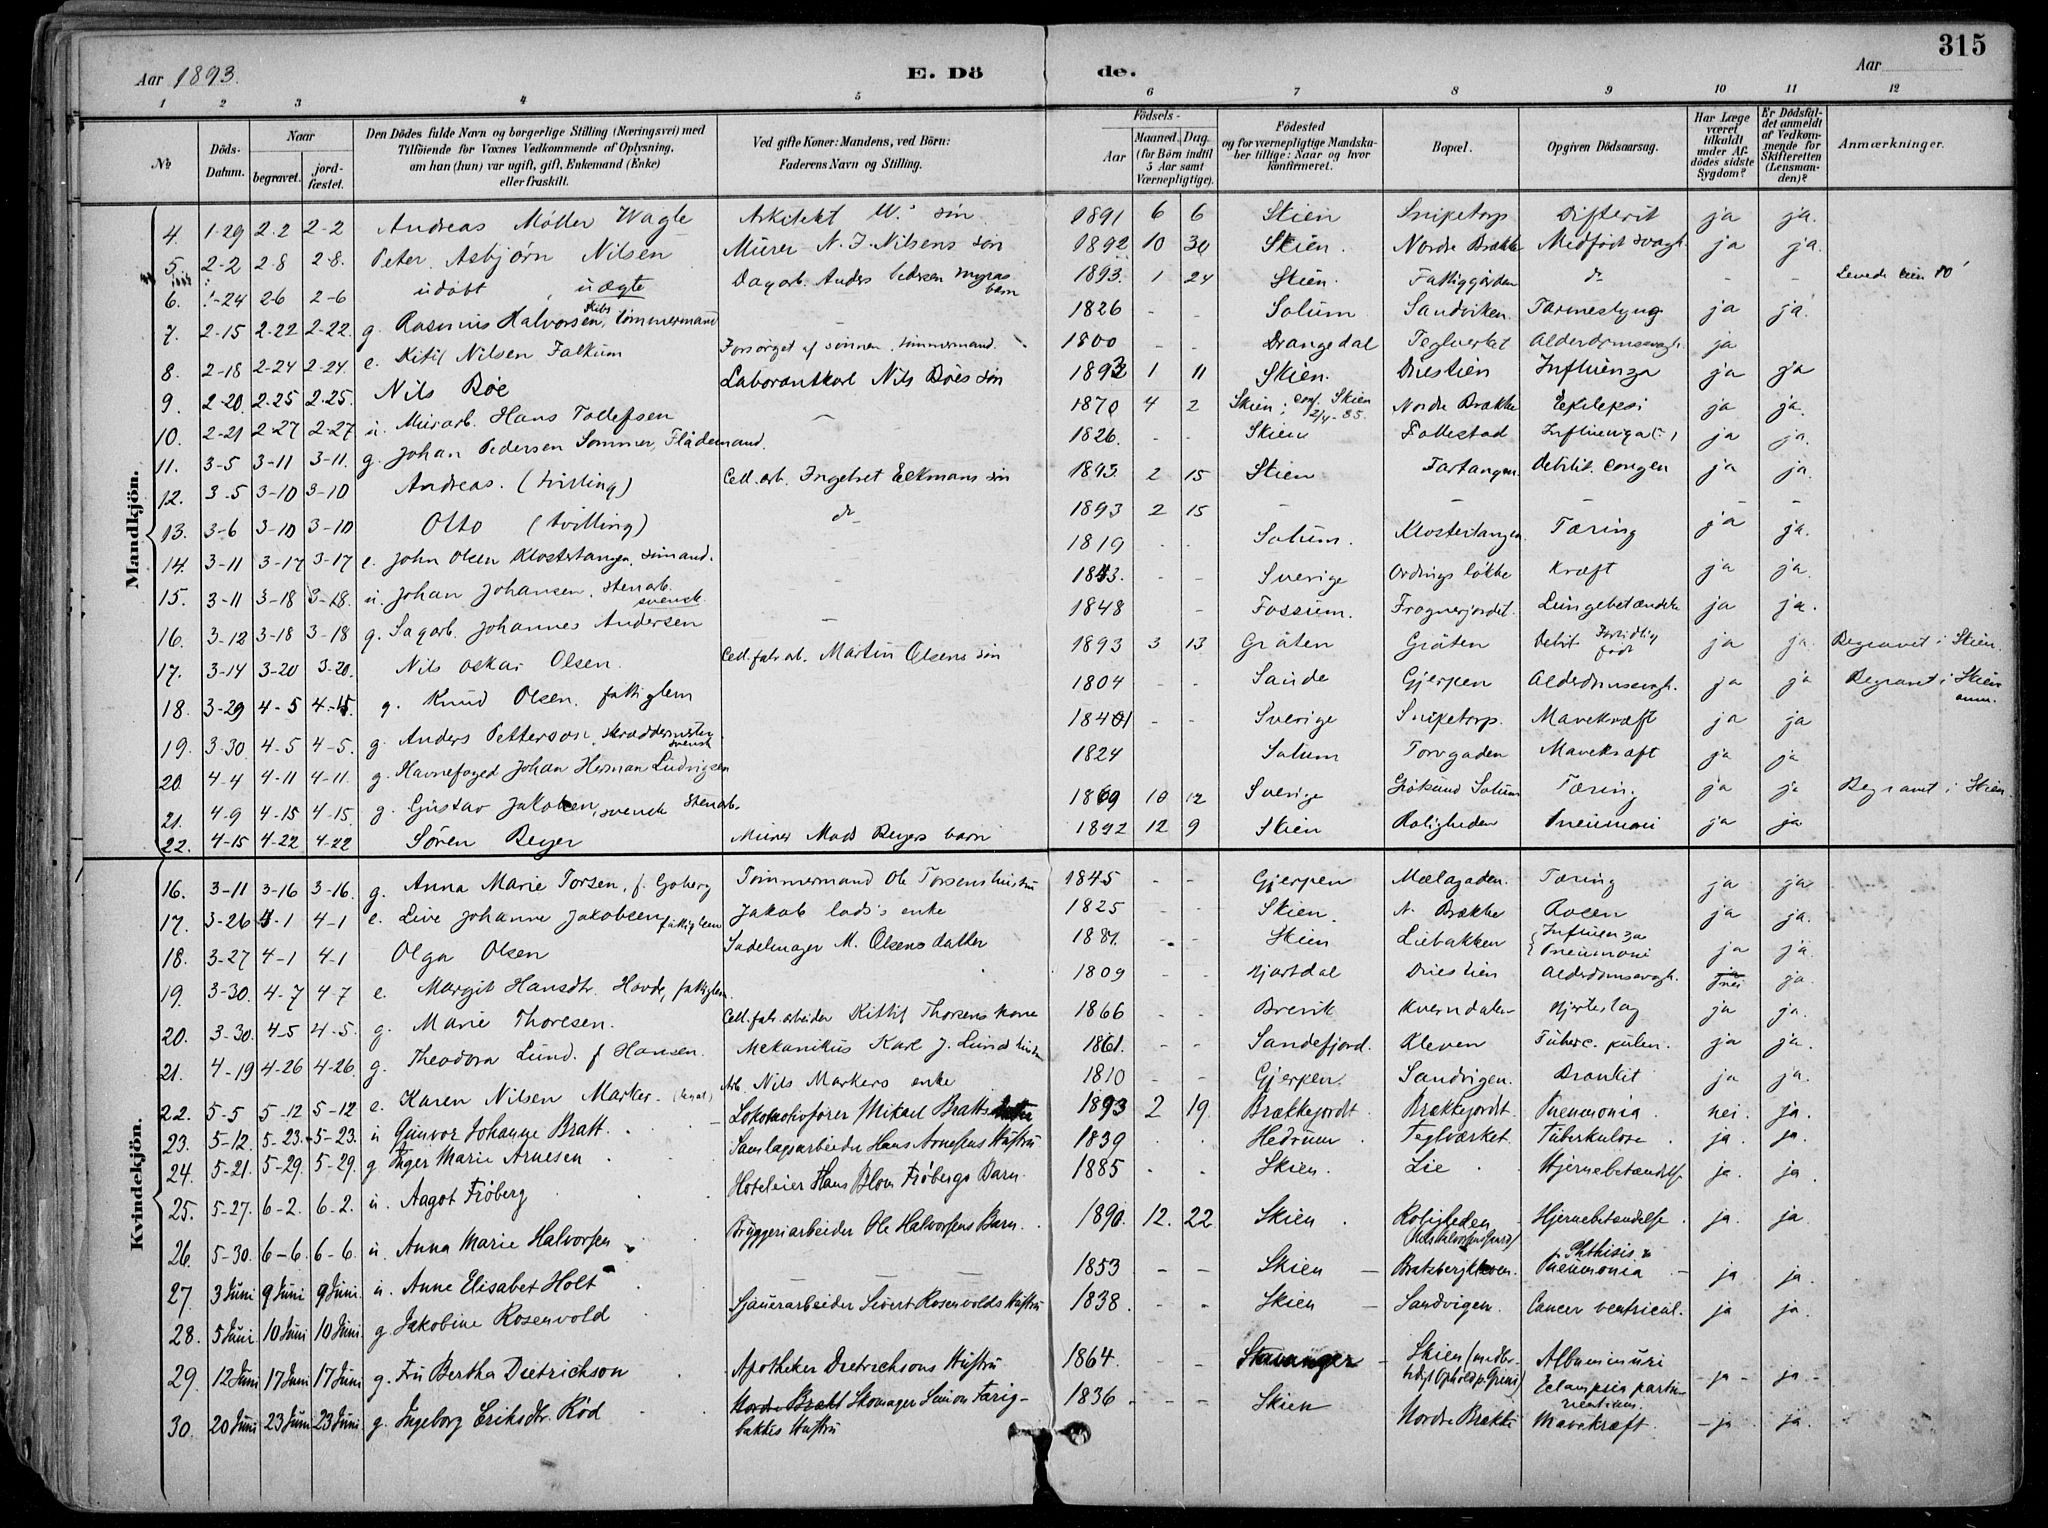 315
Aar 1893.
E. Döde.
Aar
1 2 3 4 5 6 7 8 9 10 11 12
№
Döds-Datum.
Naar
begravet.
jord-fæstet.
Den Dödes fulde Navn og borgerlige Stilling (Næringsvei) med Tilföiende for Voxnes Vedkommende af Oplysning, om han (hun) var ugift, gift, Enkemand (Enke) eller fraskilt.
Ved gifte Koner: Mandens, ved Börn: Faderens Navn og Stilling.
Födsels-
Aar
Maaned. Dag.
(for Börn indtil 5 Aar samt Værnepligtige).
Födested og for værnepligtige Mandskaber tillige: Naar og hvor konfirmeret.
Bopæl.
Opgiven Dödsaarsag.
Har Læge været tilkaldt under Afdödes sidste Sygdom?
Er Dödsfaldet anmeldt af Vedkommende for Skifteretten (Lensmanden)?
Anmærkninger.
Mandkjön.
4. 1-29 2-2 2-2 Andreas Møller Wagle Arkitekt W's søn 1891 6 6 Skien Snipetorp Difterit ja ja.
5. 2-2 2-8 2-8. Peter Asbjørn Nilsen Murer N. J. Nilsens søn 1892 10 30 Skien. Nordre Brække Medfødt svagh. ja ja.
6. 1-24 2-6 2-6 udøbt, uægte Dagarb. Anders Pedersen Myras barn 1893. 1 24 Skien. Fattiggården do - - Levede kun 10'
7. 2-15 2-22 2-22. g. Rasmus Halvorsen, skibstømmermand - 1826 - - Solum Sandviken. Tarmeslyng ja ja.
8. 2-18 2-24 2-24. e. Kitil Nilsen Falkum Forsørget af sønnen, tømmermand. 1800 - - Drangedal Teglverket Alderdomsvagh. ja
9. 2-20. 2-25 2-25. Nils Bøe Laborantkarl Nils Bøes søn 1893 1 11 Skien. Duestien Influenza ja ja
10. 2-21 2-27 2-27 u. Murarb. Hans Tollefsen - 1870 4 2 Skien; conf. Skien 2/4-85. Nordre Brække Epilepsi ja ja.
11. 3-5 3-11 3-11. g. Johan Pedersen Sommer, Flådemand. 1826. - - Skien Follestad Influenza (?) ja ja.
12. 3-5 3-10 3-10 Andreas. (tvilling) Cell. arb. Ingebret Eckmans søn 1893. 2 15 Skien Fartangen. Debilit. congen ja ja.
13. 3-6 3-10 3-10 Otto (tvilling) do 1893 2 15 - - - - -
14. 3-11 3-17 3-17 e. John Olsen Klostertangen, sømand. - 1819 - - Solum. Klostertangen Tæring ja ja.
15. 3-11 3-18 3-18. u. Johan Johansen, Stenarb. svensk. - 1843. - - Sverige Ordnings løkke Kræft ja ja.
16. 3-12 3-18 3-18 g. Sagarb. Johannes Andersen - 1848 - Fossum. Frognerjordet. Lungebetændelse ja ja.
17. 3-14 3-20 3-20. Nils Oskar Olsen. Cell. fabr. arb. Martin Olsens søn 1893 3 13 Gråten Gråten Debil. Fortidlig født ja ja. Begravet i Skien.
18. 3-29 4-5 4-5 g. Knud Olsen. fattiglem 1804 Saude Gjerpen Alderdomsvagh. ja ja Begravet i Skien
19. 3-30 4-5 4-5. g. Anders Petterson, skræddermester svensk 1841 - - Sverige Snipetorp. Mavekræft ja ja
20. 4-4 4-11 4-11. g. Havnefoged Johan Herman Ludvigsen 1824 Solum Torvgaden Mavekræft ja ja
21. 4-9 4-15 4-15. g. Gustav Jakobsen, svensk Stenarb. 1869 10 12 Sverige Solum Tæring ja ja Begravet i Skien.
22. 4-15 4-22 4-22 Søren Beyer Murer Mads Beyers barn 1892 12 9 Skien Roligheden Pneumoni ja ja
Kvindekjön.
16. 3-11 3-16 3-16. g. Anna Marie Torsen, f. Goberg Tømmermand Ole Torsens hustru 1845 - - Gjerpen Mælagaden. Tæring ja ja
17. 3-26 4-1 4-1 e. Live Johanne Jakobsen fattiglem Jakob enke 1825 - - Skien. N. Brække Rosen ja ja.
18. 3-27 4-1 4-1 Olga Olsen Sadelmager M. Olsens datter 1881. - - Skien Liebakken Influenza Pneumoni ja ja
19. 3-30. 4-7 4-7 e. Margit Hansdtr. Hovde, fattiglem. 1809 - - Hjartdal Duestien Alderdomsvagh. nei ja.
20. 3-30. 4-5 4-5. g. Marie Thoresen. Cell. fabr. arbeider Kittil Thorsens kone 1866 - - Brevik Kverndalen Hjerteslag ja ja.
21. 4-19 4-26 4-26. g. Theodora Lund. f Hansen. Mekanikus Karl J. Lunds hustru 1861. - - Sandefjord. Kleven Tuberc. pulm. ja ja.
22. 5-5 5-12 5-12 e. Karen Nilsen Marker Arb. Nils Markers enke 1810 - - Gjerpen. Sandvigen. Bronkit ja ja.
23. 5-12. 5-23. 5-23. u Gunvor Johanne Bratt. Lokomotivfører Mikael Bratts datter 1893 2 19. Brækkejordt. Brækkejordt. Pneumonia. nei. ja.
24. 5-21. 5-29. 5-29. g Inger Marie Arnesen Samlagsarbeider Hans Arnesens Hustru 1839 Hedrum Teglværket. Tuberkulose ja. ja.
25. 5-27. 6-2. 6-2. u. Aagot Frøberg Hoteleier Hans Blom Frøbergs Barn. 1885 - - Skien. Lie Hjernebetændelse ja. ja
26. 5-30. 6-6. 6-6. u. Anna Marie Halvorsen Bryggeriarbeider Ole Halvorsens Barn. 1890. 12. 22. Skien Roligheden Hjernebetændelse. ja. ja
27. 3 Juni 9 Juni 9 Juni u. Anne Elisabet Holt 1853 - - Skien Bratsbergkleven. Phthisis & Pneumonia - ja ja.
28. 5 Juni 10 Juni 10 Juni. g. Jakobine Rosenvold Sjauerarbeider Sivert Rosenvolds Hustru 1838. - - Skien Sandvigen. Cancer ventricul. ja ja.
29. 12 Juni 17 Juni 17 Juni g. Fru Bertha Dietrichson Apotheker Dietrichsons Hustru 1864. - - Stavanger - Skien (midlertidigt Ophold p. Grini) Albuminuri Eclampsia parturientium. - ja - ja -
30. 20 Juni 23 Juni 23 Juni g. Ingeborg Eriksdtr. Röd Nordre Brækk Skomager Simon Farigbakkes Hustru 1836 - - Skien Nordre Brække Mavekræft. - ja ja.